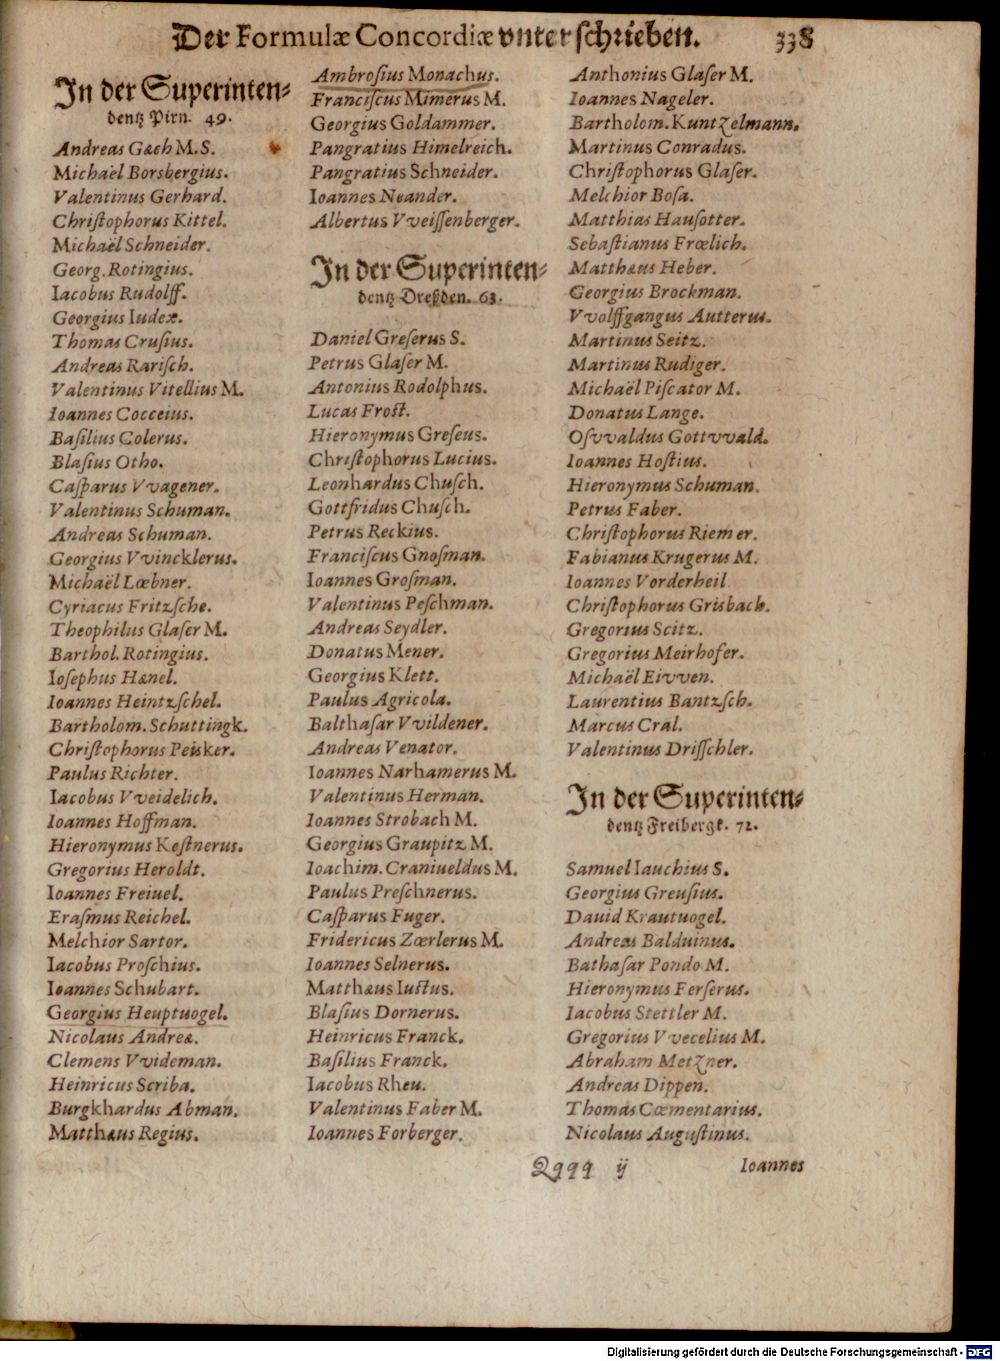 Der Formulæ Concordiæ vnterschrieben. 338
In der Superinten-
dentz Pirn. 49.
Andreas Gæch M.S.
Michaël Borsbergius.
Valentinus Gerhard.
Christophorus Kittel.
Michaël Schneider.
Georg. Rotingius.
Iacobus Rudolff.
Georgius Iudex.
Thomas Crusius.
Andreas Rarisch.
Valentinus Vitellius M.
Ioannes Cocceius.
Basilius Colerus.
Blasius Otho.
Casparus Vvagener.
Valentinus Schuman.
Andreas Schuman.
Georgius Vvincklerus.
Michaël Lœbner.
Cyriacus Fritzsche.
Theophilus Glaser M.
Barthol. Rotingius.
Iosephus Hænel.
Ioannes Heintzschel.
Bartholom. Schuttingk.
Christophorus Peisker.
Paulus Richter.
Iacobus Vveidelich.
Ioannes Hoffman.
Hieronymus Kestnerus.
Gregorius Heroldt.
Ioannes Freiuel.
Erasmus Reichel.
Melchior Sartor.
Iacobus Proschius.
Ioannes Schubart.
Georgius Heuptuogel.
Nicolaus Andreæ.
Clemens Vvideman.
Heinricus Scriba.
Burgkhardus Abman.
Matthæus Regius.
Ambrosius Monachus.
Franciscus Mimerus M.
Georgius Goldammer.
Pangratius Himelreich.
Pangratius Schneider.
Ioannes Neander.
Albertus Vveissenberger.
In der Superinten-
dentz Dreßden. 63.
Daniel Greserus S.
Petrus Glaser M.
Antonius Rodolphus.
Lucas Frost.
Hieronymus Greseus.
Christophorus Lucius.
Leonhardus Chusch.
Gottfridus Chusch.
Petrus Reckius.
Franciscus Gnosman.
Ioannes Grosman.
Valentinus Peschman.
Andreas Seydler.
Donatus Mener.
Georgius Klett.
Paulus Agricola.
Balthasar Vvildener.
Andreas Venator.
Ioannes Narhamerus M.
Valentinus Herman.
Ioannes Strobach M.
Georgius Graupitz M.
Ioachim. Craniueldus M.
Paulus Preschnerus.
Casparus Fuger.
Fridericus Zœrlerus M.
Ioannes Selnerus.
Matthæus Iustus.
Blasius Dornerus.
Heinricus Franck.
Basilius Franck.
Iacobus Rheu.
Valentinus Faber M.
Ioannes Forberger.
Anthonius Glaser M.
Ioannes Nageler.
Bartholom. Kuntzelmann.
Martinus Conradus.
Christophorus Glaser.
Melchior Bosa.
Matthias Hausotter.
Sebastianus Frœlich.
Matthæus Heber.
Georgius Brockman.
Vvolffgangus Autterus.
Martinus Seitz.
Martinus Rudiger.
Michaël Piscator M.
Donatus Lange.
Osvvaldus Gottvvald.
Ioannes Hostius.
Hieronymus Schuman.
Petrus Faber.
Christophorus Riemer.
Fabianus Krugerus M.
Ioannes Vorderheil
Christophorus Grisbach.
Gregorius Scitz.
Gregorius Meirhofer.
Michaël Eivven.
Laurentius Bantzsch.
Marcus Cral.
Valentinus Drisschler.
In der Superinten-
dentz Freibergk. 72.
Samuel Iauchius S.
Georgius Greusius.
Dauid Krautuogel.
Andreas Balduinus.
Bathasar Pondo M.
Hieronymus Ferserus.
Iacobus Stettler M.
Gregorius Vvecelius M.
Abraham Metzner.
Andreas Dippen.
Thomas Cœmentarius.
Nicolaus Augustinus.
Qqqq ij Ioannes
Digitalisierung gefördert durch die Deutsche Forschungsgemeinschaft - DFG